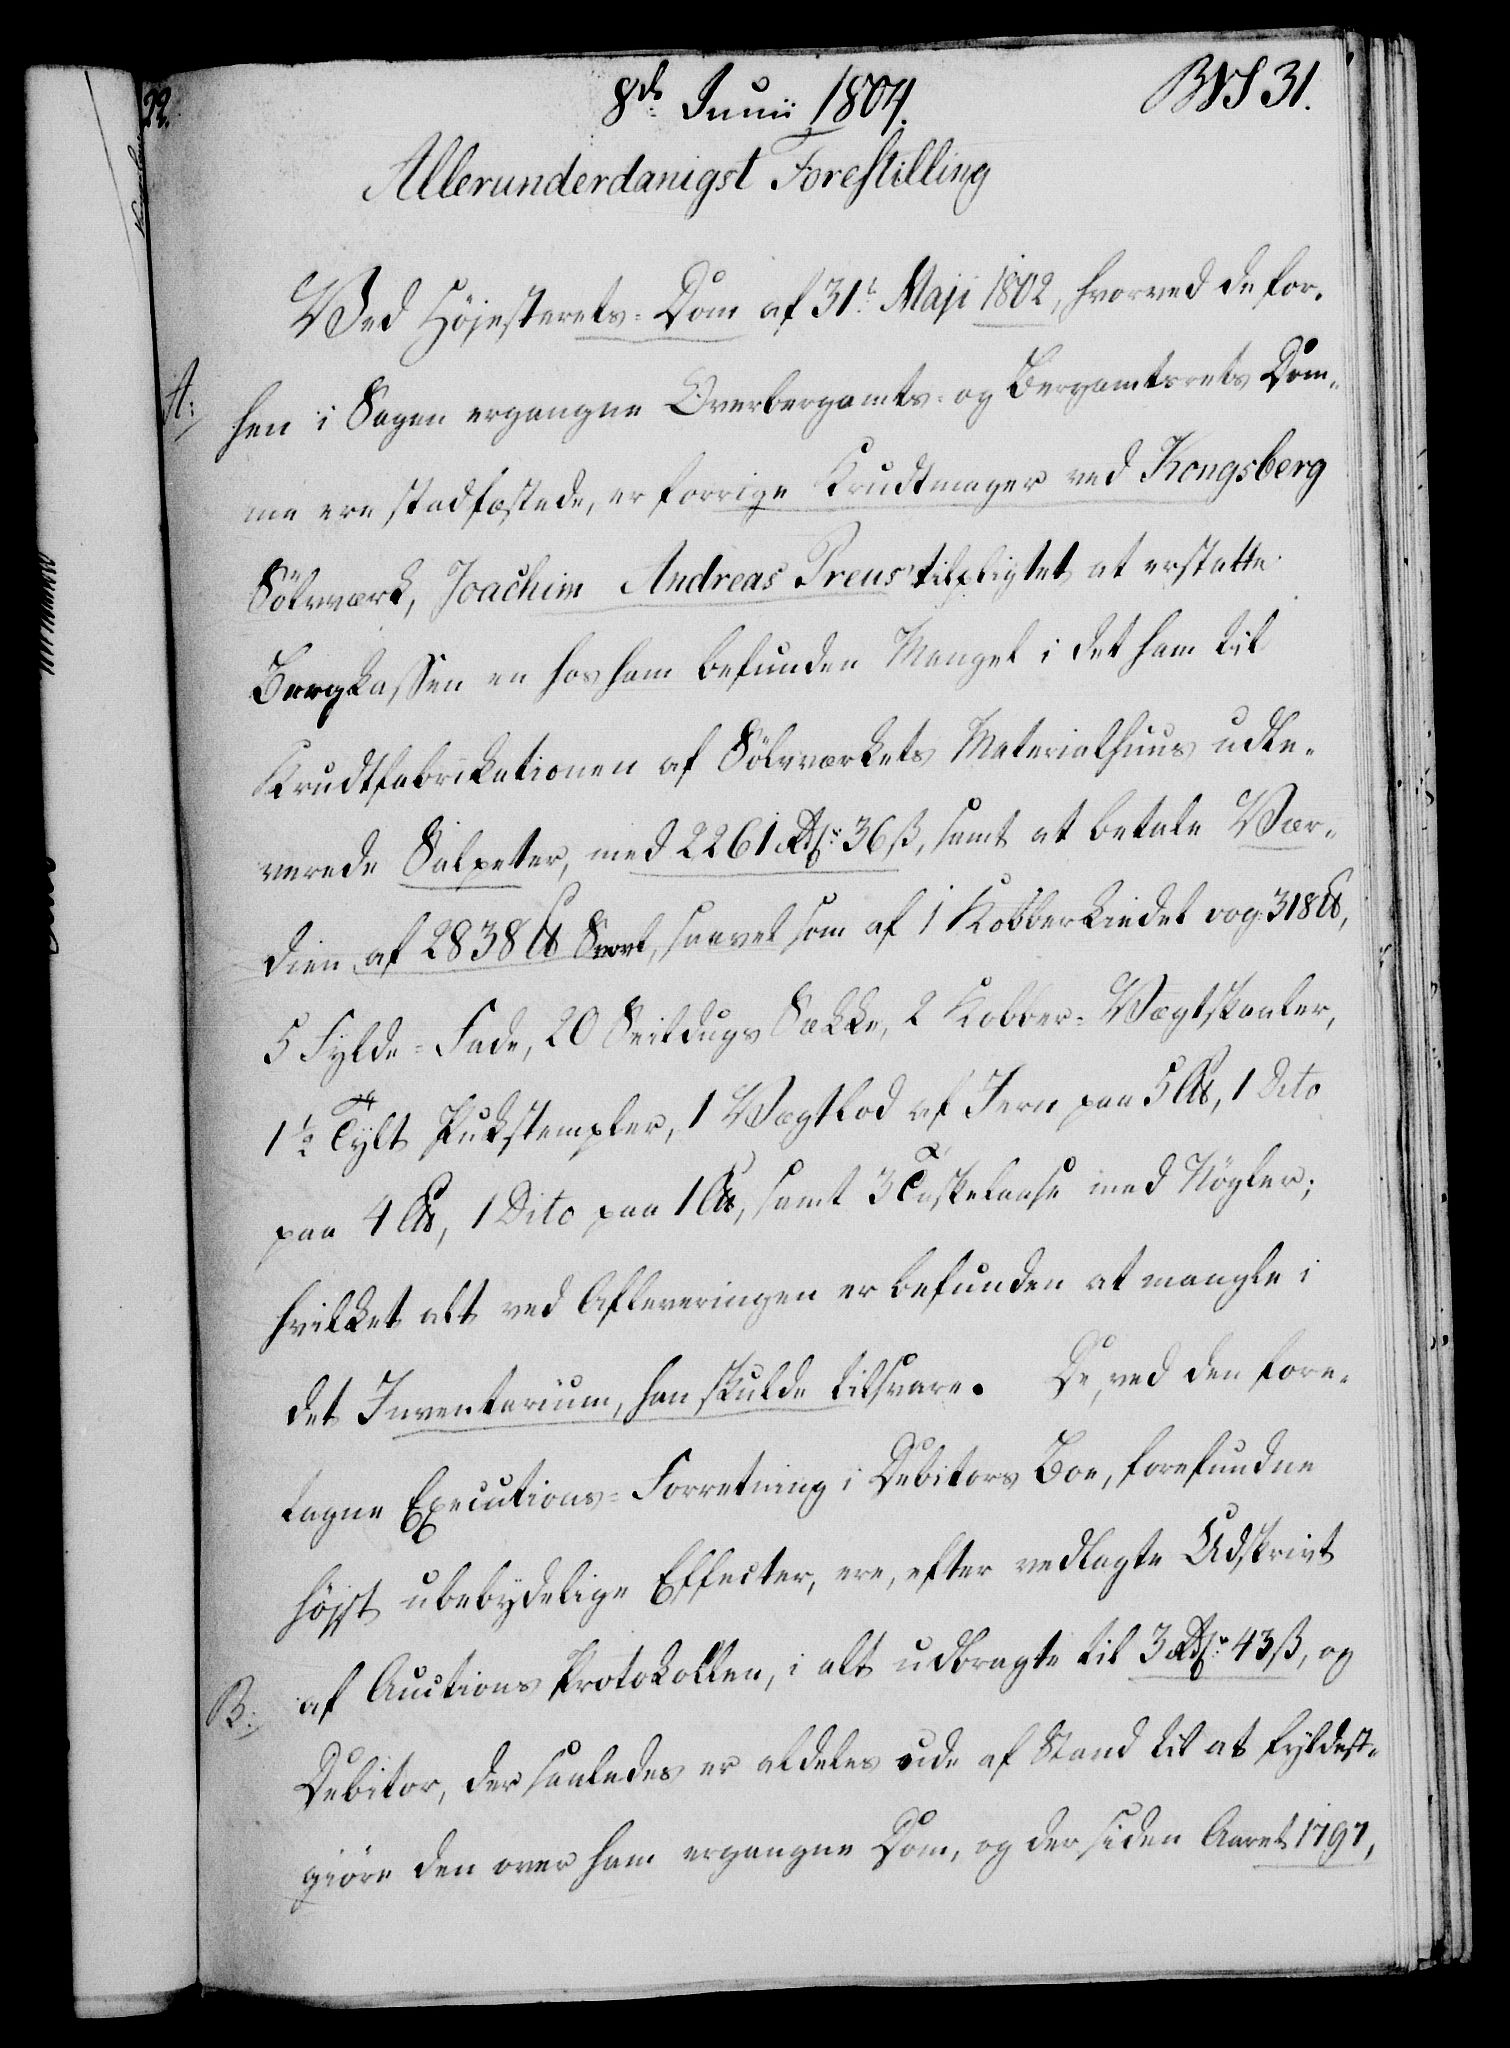 22.
8de Junii 1804.
BVS 31.
Allerunderdanigst Forestilling
Ved Höjesterets-Dom af 31te Maji 1802, hvorved de for-
A:
hen i Sagen ergangne Overbergamts- og Bergamtsrets Dom-
me ere stadfæstede, er forrige Krudtmager ved Kongsberg
Sölvværk, Joachim Andreas Preus tilpligtet at erstatte
Bergkassen en hos ham befunden Mangel i det ham til
Krudtfabrikationen af Sölvværkets Materialhuus udle-
verede Salpeter, med 2261 Rdlr 36 ß, samt at betale Vær-
dien af 2838 ℔ Svovl, saavel som af 1 Kobberkiedel vog 318 ℔,
5 Fylde-Fade, 20 Seildugs Sække, 2 Kobber-Vægtskaaler,
1 1/2 Tylt Pukstempler, 1 Vægtlod af Jern paa 5 ℔, 1 Dito
paa 4 ℔, 1 Dito paa 1 ℔, samt 3 Taskelaase med Nögler;
hvilket alt ved Afleveringen er befunden at mangle i
det Inventarium, han skulde tilsvare. De, ved den fore-
tagne Executions-Forretning i Debitors Boe, forefundne
höjst ubetydelige Effecter, ere, efter vedlagte Udskrivt
B:
af Auctions Protokollen, i alt udbragte til 3 Rdlr 43 ß, og
Debitor, der saaledes er aldeles ude af Stand til at fyldest-
giöre den over ham ergangne Dom, og der siden Aaret 1797,